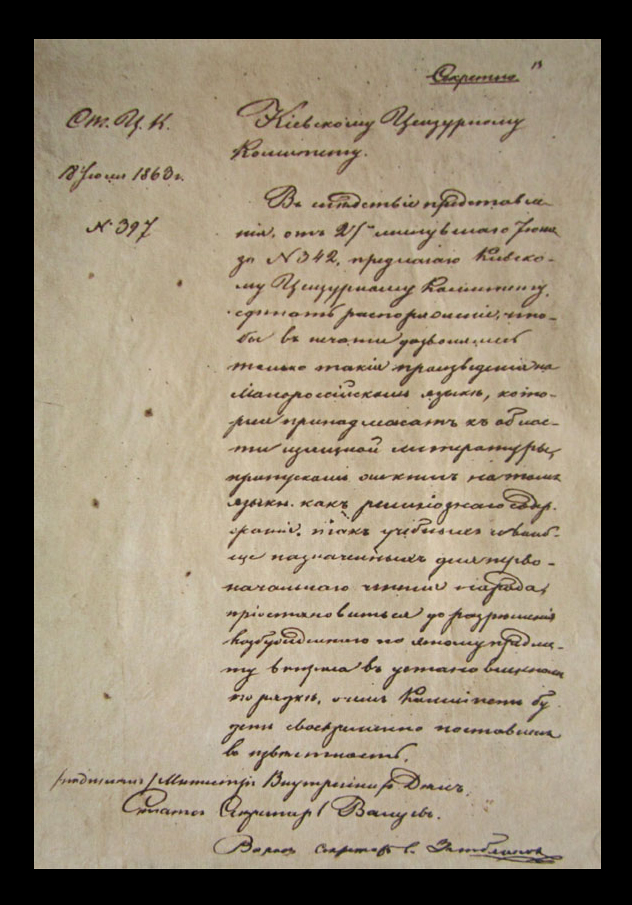 Секретно
Ст. Ц. К.
18 Июля 1863 г.
№ 397
Кіевскому Цензурному
Комитету.
Въ слѣдствіе представле
нія, отъ 27го минувшаго Іюня
за №342, предлагаю Кіевско-
му Цензурному Комитету,
сдѣлать распоряженіе, что-
бы въ печати дозволялись
только такія произведенія на
Малороссійскомъ языкѣ, кото-
рыя принадлежатъ къ облас-
ти изящной литературы,
пропускомъ же книгъ на томъ
языкѣ, какъ религіознаго содер-
жанія, такъ учебныхъ и вооб-
ще назначенныхъ для перво-
начальнаго чтенія народа,
пріостановиться до разрѣшенія
возбужденнаго по этому предме-
ту вопроса въ установленномъ
порядкѣ, о чемъ Комитетъ бу
детъ своевременно поставленъ
въ извѣстность.
(подписалъ) Министръ Внутреннихъ Дѣлъ,
Статсъ Секретарь Валуевъ.
секретарь